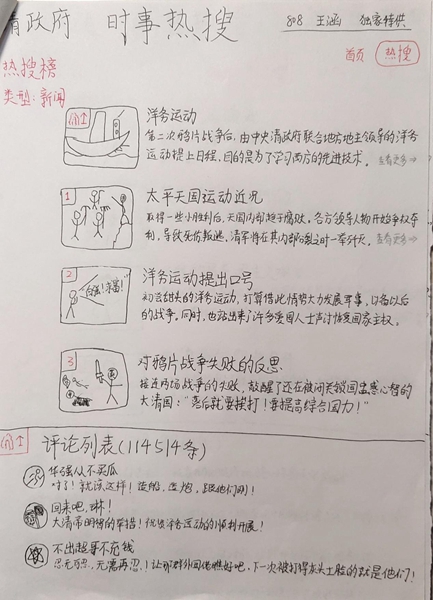 清政府 时事热搜
808 王涵 独家特供
首页 热搜
热搜榜
类型:新闻
洋务运动
第二次鸦片战争后,由中央清政府联合地方地主领导的洋务
运动提上日程,目的是为了学习西方的先进技术。查看更多
1
太平天国运动近况
取得一些小胜利后,天国内部趋于腐败。各方领导人物开始争权夺
利,导致死伤叛逃,清军将在其内部混乱之时一举歼灭。查看更多
2
"自强!求富!"
洋务运动提出口号
初尝甜头的洋务运动,打算借此情势大力发展军事,以备以后
的战争。同时,也站出来了许多爱国人士声讨恢复国家主权。
3
对鸦片战争失败的反思
接连两场战争的失败,敲醒了还在被闭关锁国蛊惑心智的
大清国:"落后就要挨打!要提高综合国力!"
评论列表(114514条)
华强从不买瓜
对了!就该这样!造船,造炮,跟他们刚!
回来吧,琳!
大清帝明智的举措!祝愿洋务运动的顺利开展!
不出超哥不充钱
忍无可忍,无需再忍!让那群外国佬瞧好吧,下一次被打得灰头土脸的就是他们!